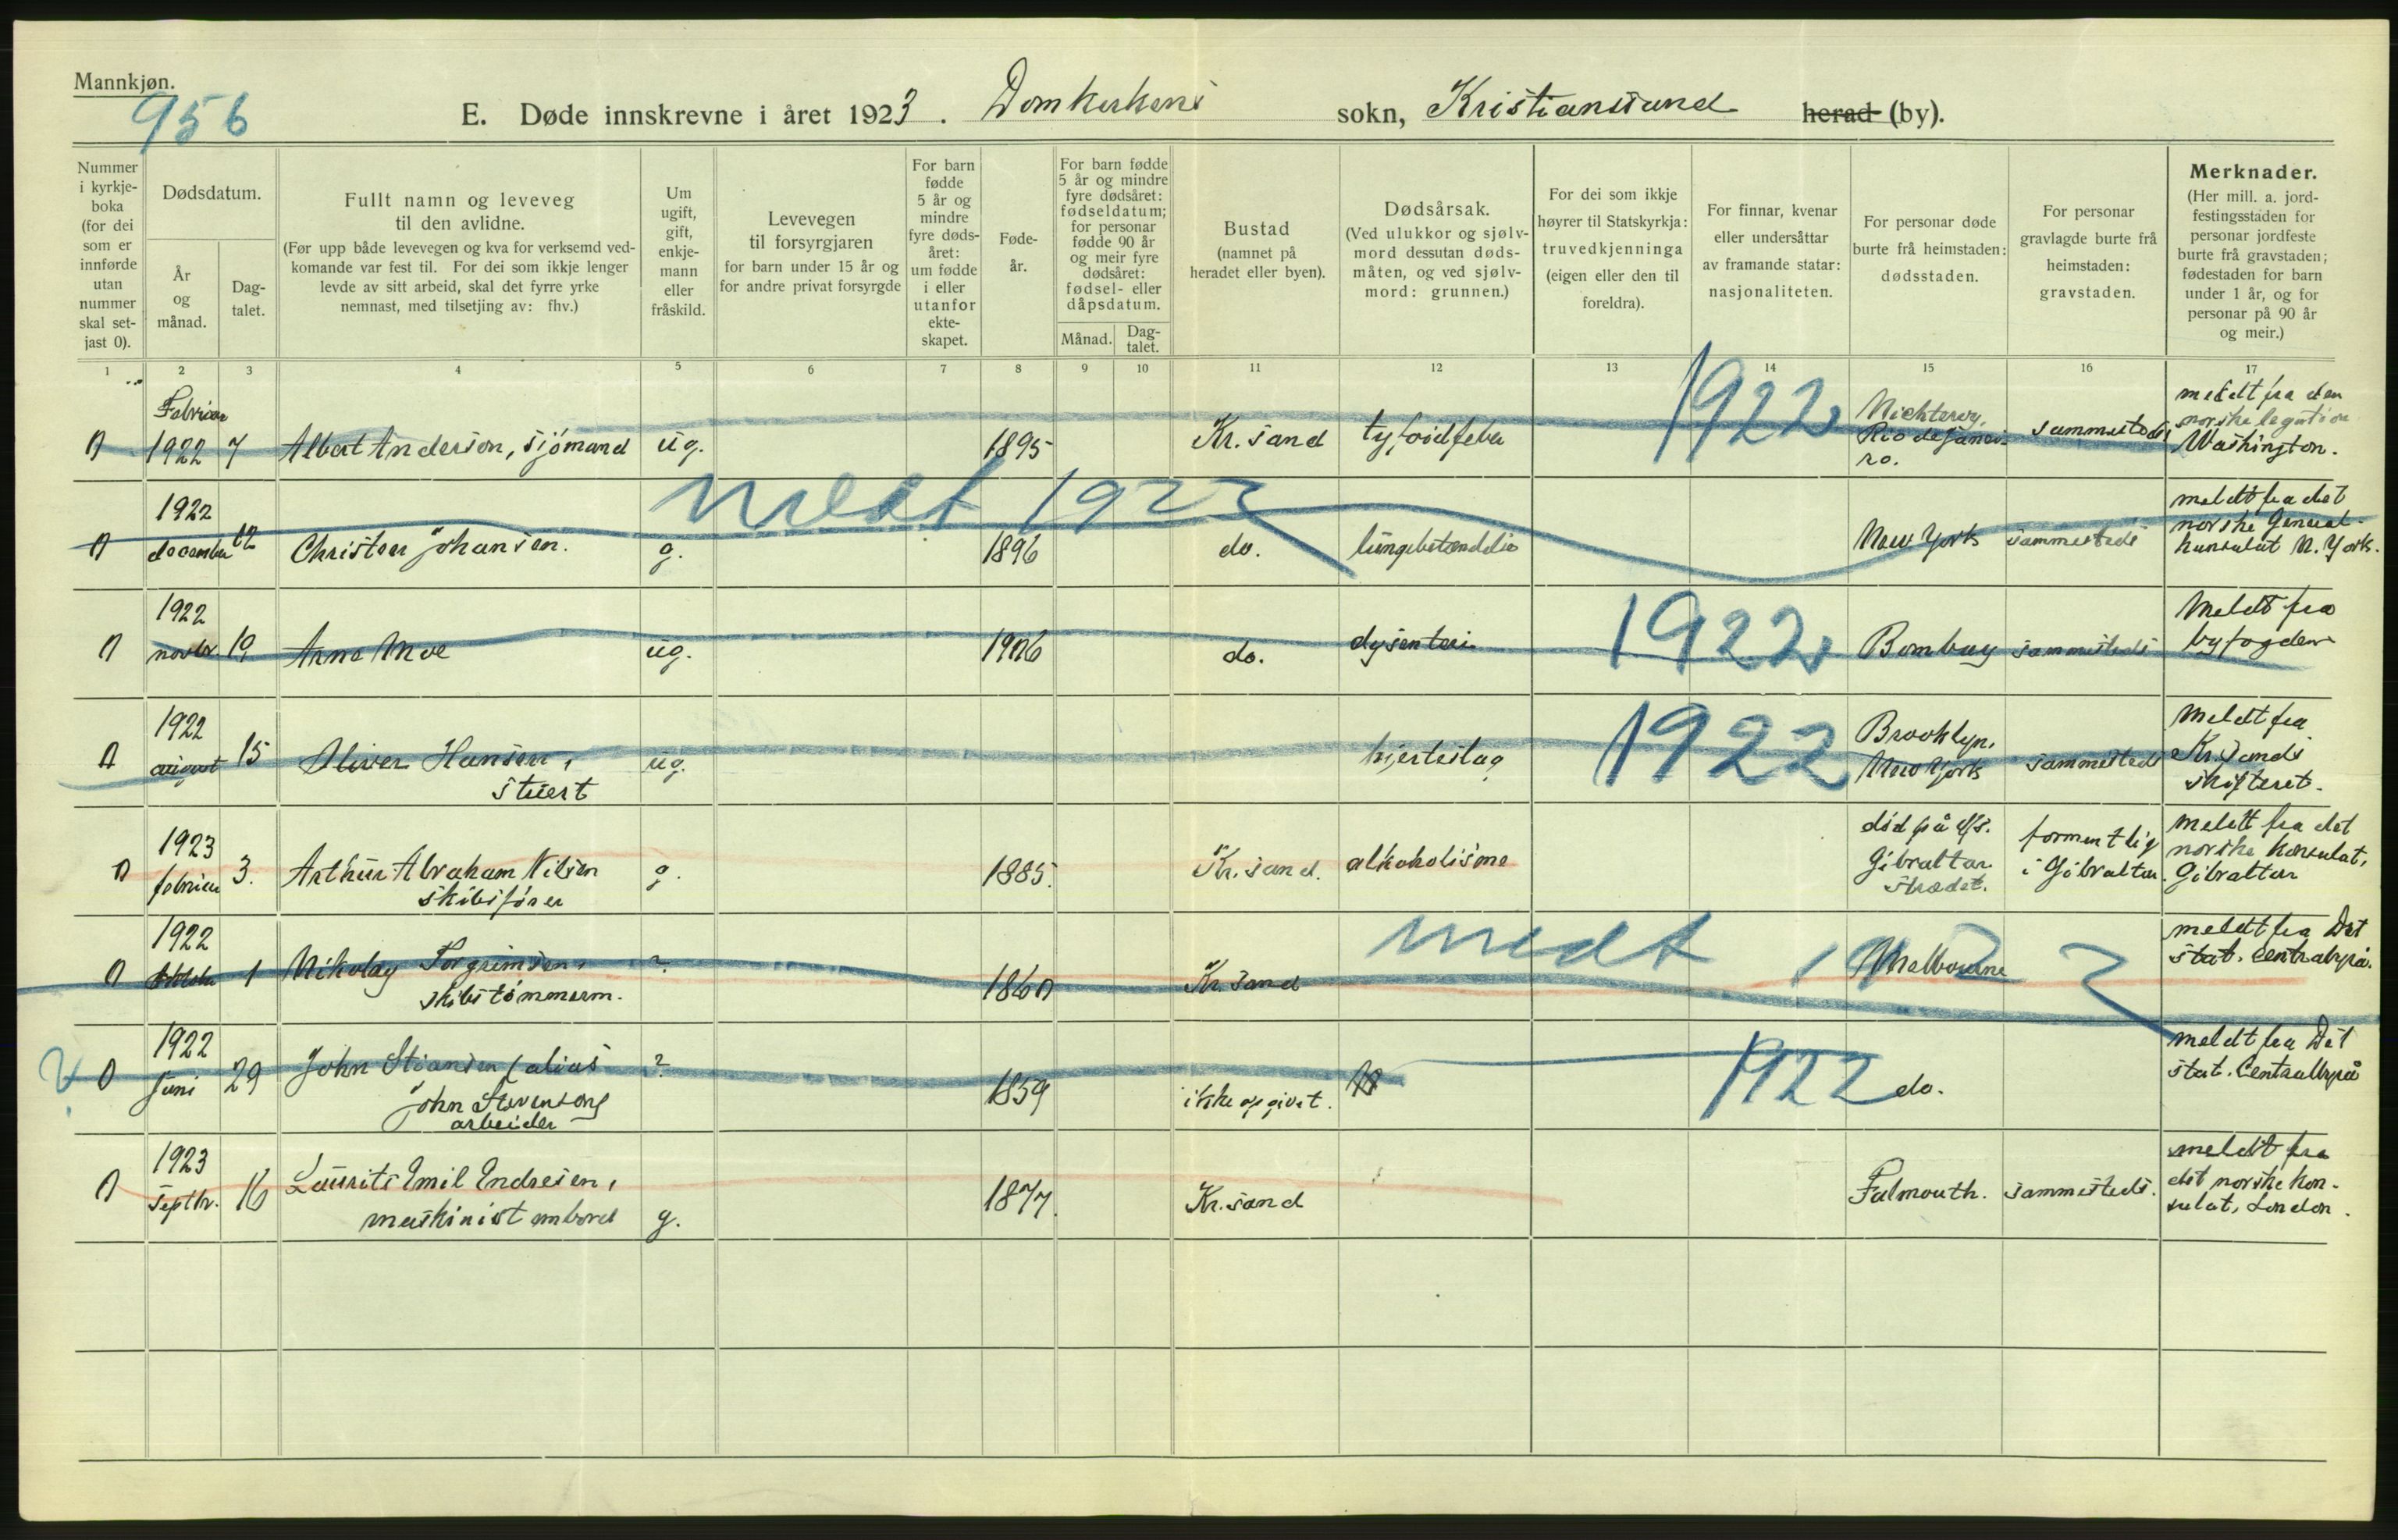 Mannkjøn.
956
E. Døde innskrevne i året 1923. Domkirkens sokn, Kristianssand herad (by).
Nummer i kyrkjeboka (for dei som er innførde utan nummer skal setjast 0).
Dødsdatum.
År og månad.
Dagtalet.
Fullt namn og leveveg til den avlidne.
(Før upp både levevegen og kva for verksemd vedkomande var fest til. For dei som ikkje lenger levde av sitt arbeid, skal det fyrre yrke nemnast, med tilsetjing av: fhv.)
Um ugift, gift, enkjemann eller fråskild.
Levevegen til forsyrgjaren for barn under 15 år og for andre privat forsyrgde
For barn fødde 5 år og mindre fyre dødsåret: um fødde i eller utanfor ekteskapet.
Fødeår.
For barn fødde 5 år og mindre fyre dødsåret: fødseldatum; for personar fødde 90 år og meir fyre dødsåret: fødsel- eller dåpsdatum.
Månad.
Dagtalet.
Bustad (namnet på heradet eller byen).
Dødsårsak.
(Ved ulukkor og sjølvmord dessutan dødsmåten, og ved sjølvmord: grunnen.)
For dei som ikkje høyrer til Statskyrkja: truvedkjenninga (eigen eller den til foreldra).
For finnar, kvenar eller undersåttar av framande statar: nasjonaliteten.
For personar døde burte frå heimstaden: dødsstaden.
For personar gravlagde burte frå heimstaden: gravstaden.
Merknader.
(Her mill. a. jordfestingsstaden for personar jordfeste burte frå gravstaden; fødestaden for barn under 1 år, og for personar på 90 år og meir.)
1 2 3 4 5 6 7 8 9 10 11 12 13 14 15 16 17
0 Februar 1922 7 Albert Anderson, sjømand ug. 1895 Kr.sand tyfoidfeber 1922 Rio de Janeiro. sammesteds meldt fra den norske legation Washington.
medt 1922
0 1922 december 12 Christen Johansen. g. 1896 do. lungebetændelse New York sammesteds meldt fra det norske General-konsulat N. York.
0 1922 novbr 19 Arne Moe ug. 1906 do. dysenteri 1922 Bombay sammesteds Meldt fra byfogden
0 1922 august 15 Oliver Hansen, stuert ug. hjerteslag 1922 Brooklyn, New York sammesteds Meldt fra Kr.sands skifteret.
0 1923 februar 3. Arthur Abraham Nilsen skibsfører g. 1885. Kr.sand. alkoholisme død på d/s. Gibraltar strædet. formentlig i Gibraltar. Meldt fra det norske konsulat, Gibraltar
medt 1922
0 1922 oktober 1 Nikolay Torgrimsen, skibstømmerm. ?. 1860 Kr.sand Melbourne meldt fra Det stat. Centralbyrå.
? 0 1922 juni 29 John Stiansen (alias John Stevenson) arbeider ?. 1859 ikke opgivet. 1922 do. meldt fra Det stat. Centralbyrå
0 1923 septbr. 16 Laurits Emil Endresen, maskinist ombord g. 1877. Kr.sand Falmouth. sammesteds. meldt fra det norske konsulat, London.